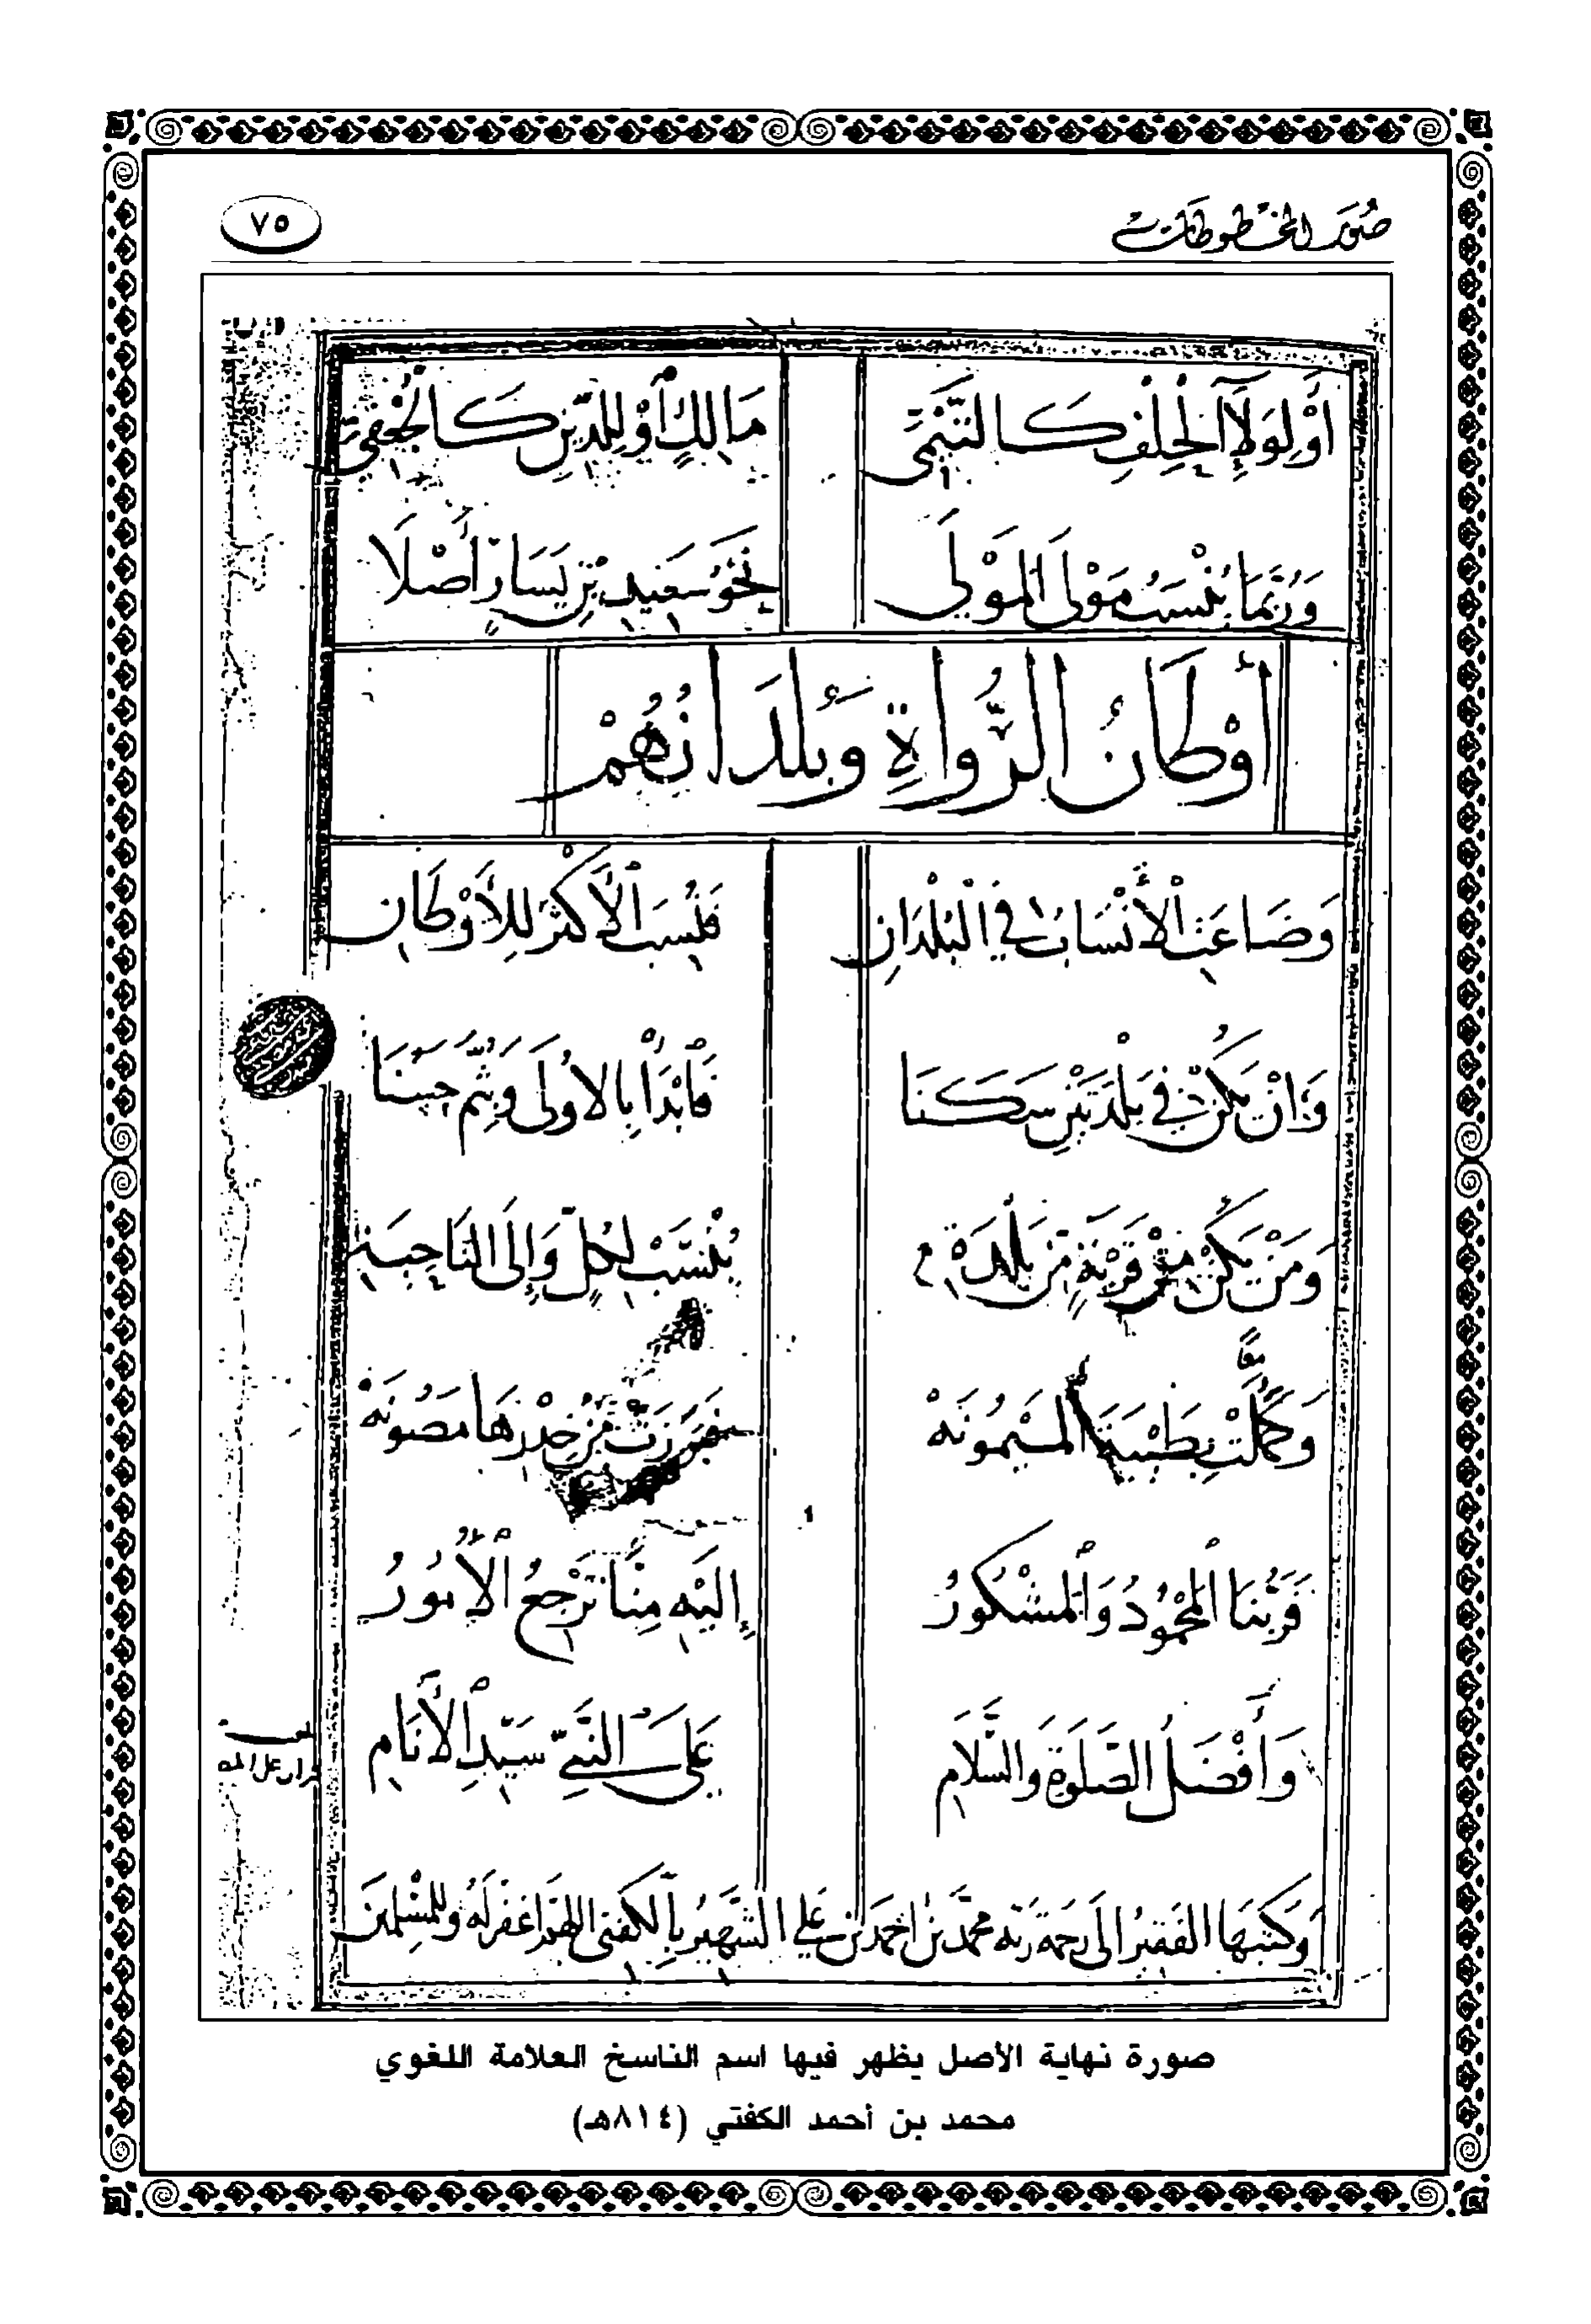 صور المخطوطات
٧٥
أَوْ لِوَلَاءِ الْحِلْفِ كَالتَّيْمِيِّ مَالِكٍ أَوْ لِلدِّينِ كَالْجُعْفِيِّ
وَرُبَّمَا يُنْسَبُ مَوْلَى الْمَوْلَى نَحْوُ سَعِيدِ بْنِ يَسَارٍ أَصْلَا
أَوْطَانُ الرُّوَاةِ وَبُلْدَانُهُمْ
وَضَاعَتِ الْأَنْسَابُ فِي الْبُلْدَانِ فَنُسِبَ الْأَكْثَرُ لِلْأَوْطَانِ
وَإِنْ يَكُنْ فِي بَلْدَتَيْنِ سَكَنَا فَابْدَأْ بِالْأُولَى وَبِثُمَّ حَسُنَا
وَمَنْ يَكُنْ مِنْ قَرْيَةٍ مِنْ بَلْدَةِ يُنْسَبْ لِكُلٍّ وَإِلَى النَّاحِيَةِ
وَكَمُلَتْ بِطَيْبَةَ الْمَيْمُونَهْ فَبَرَزَتْ مِنْ خِدْرِهَا مَصُونَهْ
فَرَبُّنَا الْمَحْمُودُ وَالْمَشْكُورُ إِلَيْهِ مِنَّا تَرْجِعُ الْأُمُورُ
وَأَفْضَلُ الصَّلَوةِ وَالسَّلَامِ عَلَى النَّبِيِّ سَيِّدِ الْأَنَامِ
وَكَتَبَهَا الْفَقِيرُ إِلَى رَحْمَةِ رَبِّهِ مُحَمَّدُ بْنُ أَحْمَدَ بْنِ عَلِيٍّ الشَّهِيرُ بِالْكُفْتِي اللَّهُمَّ اغْفِرْ لَهُ وَلِلْمُسْلِمِينَ
صورة نهاية الأصل يظهر فيها اسم الناسخ العلامة اللغوي
محمد بن أحمد الكفتي (٨١٤هـ)